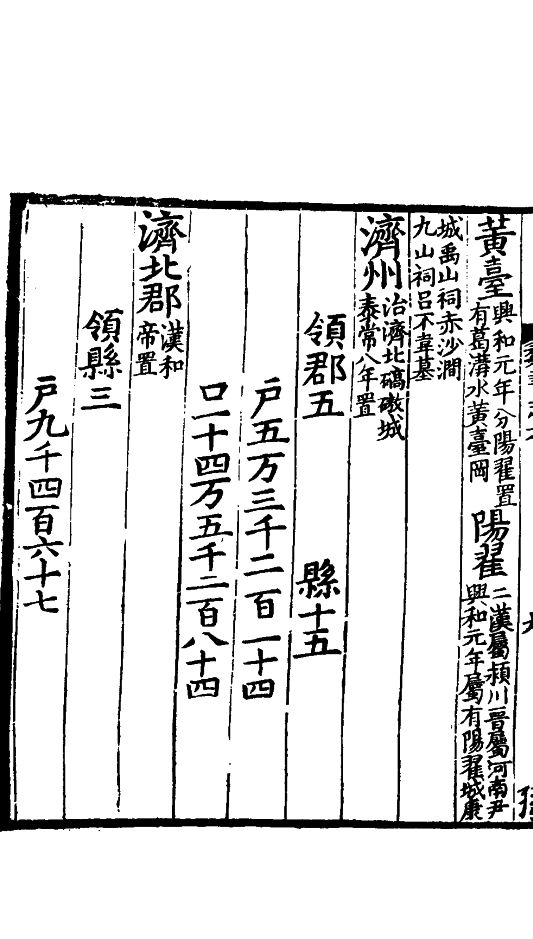 黃臺興和元年分陽翟置有葛溝水黃臺岡 陽翟二漢屬潁川晉屬河南尹興和元年屬有陽翟城康
城禹山祠赤沙澗九山祠呂不韋墓
濟州治濟北碻磝城泰常八年置
領郡五 縣十五
戶五万三千二百一十四
口一十四万五千二百八十四
濟北郡漢和帝置
領縣三
戶九千四百六十七